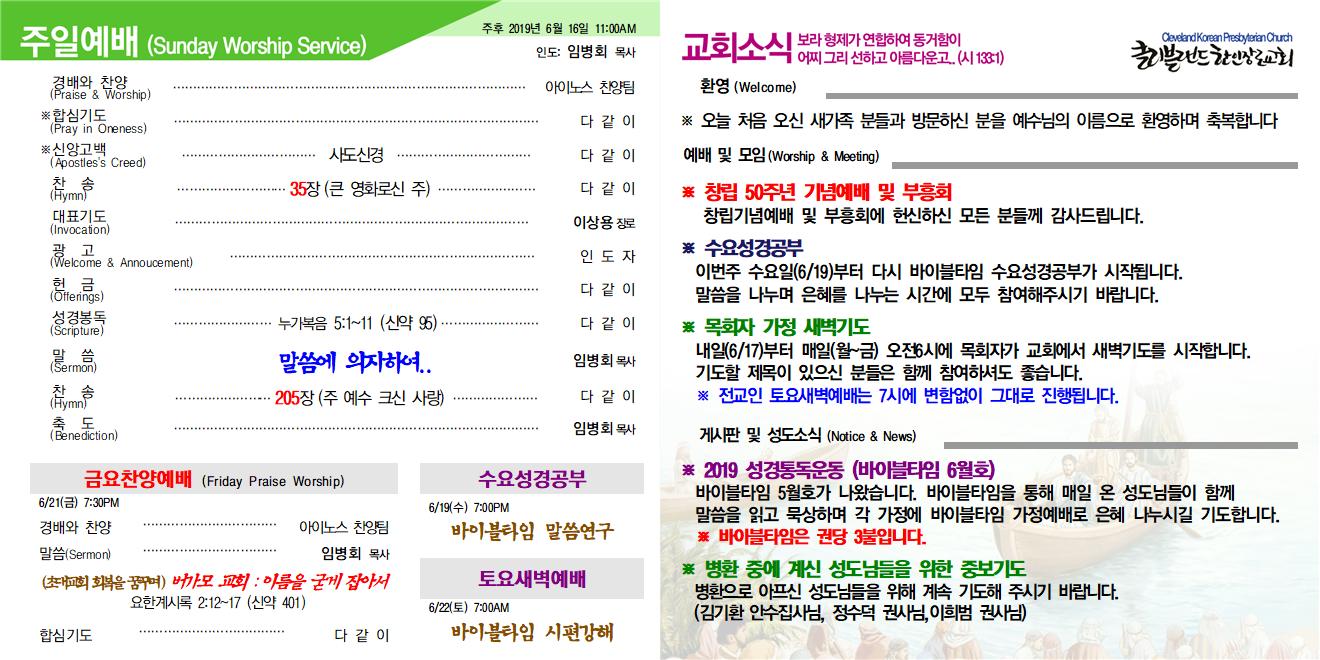 주일예배 (Sunday Worship Service)
주후 2019년 6월 16일 11:00AM
인도: 임병회 목사
경배와 찬양 아이노스 찬양팀
(Praise & Worship)
※합심기도 다 같 이
(Pray in Oneness)
※신앙고백 사도신경 다 같 이
(Apostles's Creed)
찬 송 35장 (큰 영화로신 주) 다 같 이
(Hymn)
대표기도 이상용 장로
(Invocation)
광 고 인 도 자
(Welcome & Annoucement)
헌 금 다 같 이
(Offerings)
성경봉독 누가복음 5:1~11 (신약 95) 다 같 이
(Scripture)
말 씀 말씀에 의지하여.. 임병회 목사
(Sermon)
찬 송 205장 (주 예수 크신 사랑) 다 같 이
(Hymn)
축 도 임병회 목사
(Benediction)
금요찬양예배 (Friday Praise Worship)
6/21(금) 7:30PM
경배와 찬양 아이노스 찬양팀
말씀(Sermon) 임병회 목사
(초대교회 회복을 꿈꾸며) 버가모 교회 : 이름을 굳게 잡아서
요한계시록 2:12~17 (신약 401)
합심기도 다 같 이
수요성경공부
6/19(수) 7:00PM
바이블타임 말씀연구
토요새벽예배
6/22(토) 7:00AM
바이블타임 시편강해
교회소식 보라 형제가 연합하여 동거함이
어찌 그리 선하고 아름다운고.. (시 133:1)
Cleveland Korean Presbyterian Church
클리블랜드 한인장로교회
환영 (Welcome)
※ 오늘 처음 오신 새가족 분들과 방문하신 분을 예수님의 이름으로 환영하며 축복합니다
예배 및 모임 (Worship & Meeting)
※ 창립 50주년 기념예배 및 부흥회
창립기념예배 및 부흥회에 헌신하신 모든 분들께 감사드립니다.
※ 수요성경공부
이번주 수요일(6/19)부터 다시 바이블타임 수요성경공부가 시작됩니다.
말씀을 나누며 은혜를 나누는 시간에 모두 참여해주시기 바랍니다.
※ 목회자 가정 새벽기도
내일(6/17)부터 매일(월~금) 오전6시에 목회자가 교회에서 새벽기도를 시작합니다.
기도할 제목이 있으신 분들은 함께 참여하셔도 좋습니다.
※ 전교인 토요새벽예배는 7시에 변함없이 그대로 진행됩니다.
게시판 및 성도소식 (Notice & News)
※ 2019 성경통독운동 (바이블타임 6월호)
바이블타임 5월호가 나왔습니다. 바이블타임을 통해 매일 온 성도님들이 함께
말씀을 읽고 묵상하며 각 가정에 바이블타임 가정예배로 은혜 나누시길 기도합니다.
※ 바이블타임은 권당 3불입니다.
※ 병환 중에 계신 성도님들을 위한 중보기도
병환으로 아프신 성도님들을 위해 계속 기도해 주시기 바랍니다.
(김기환 안수집사님, 정수덕 권사님,이희범 권사님)